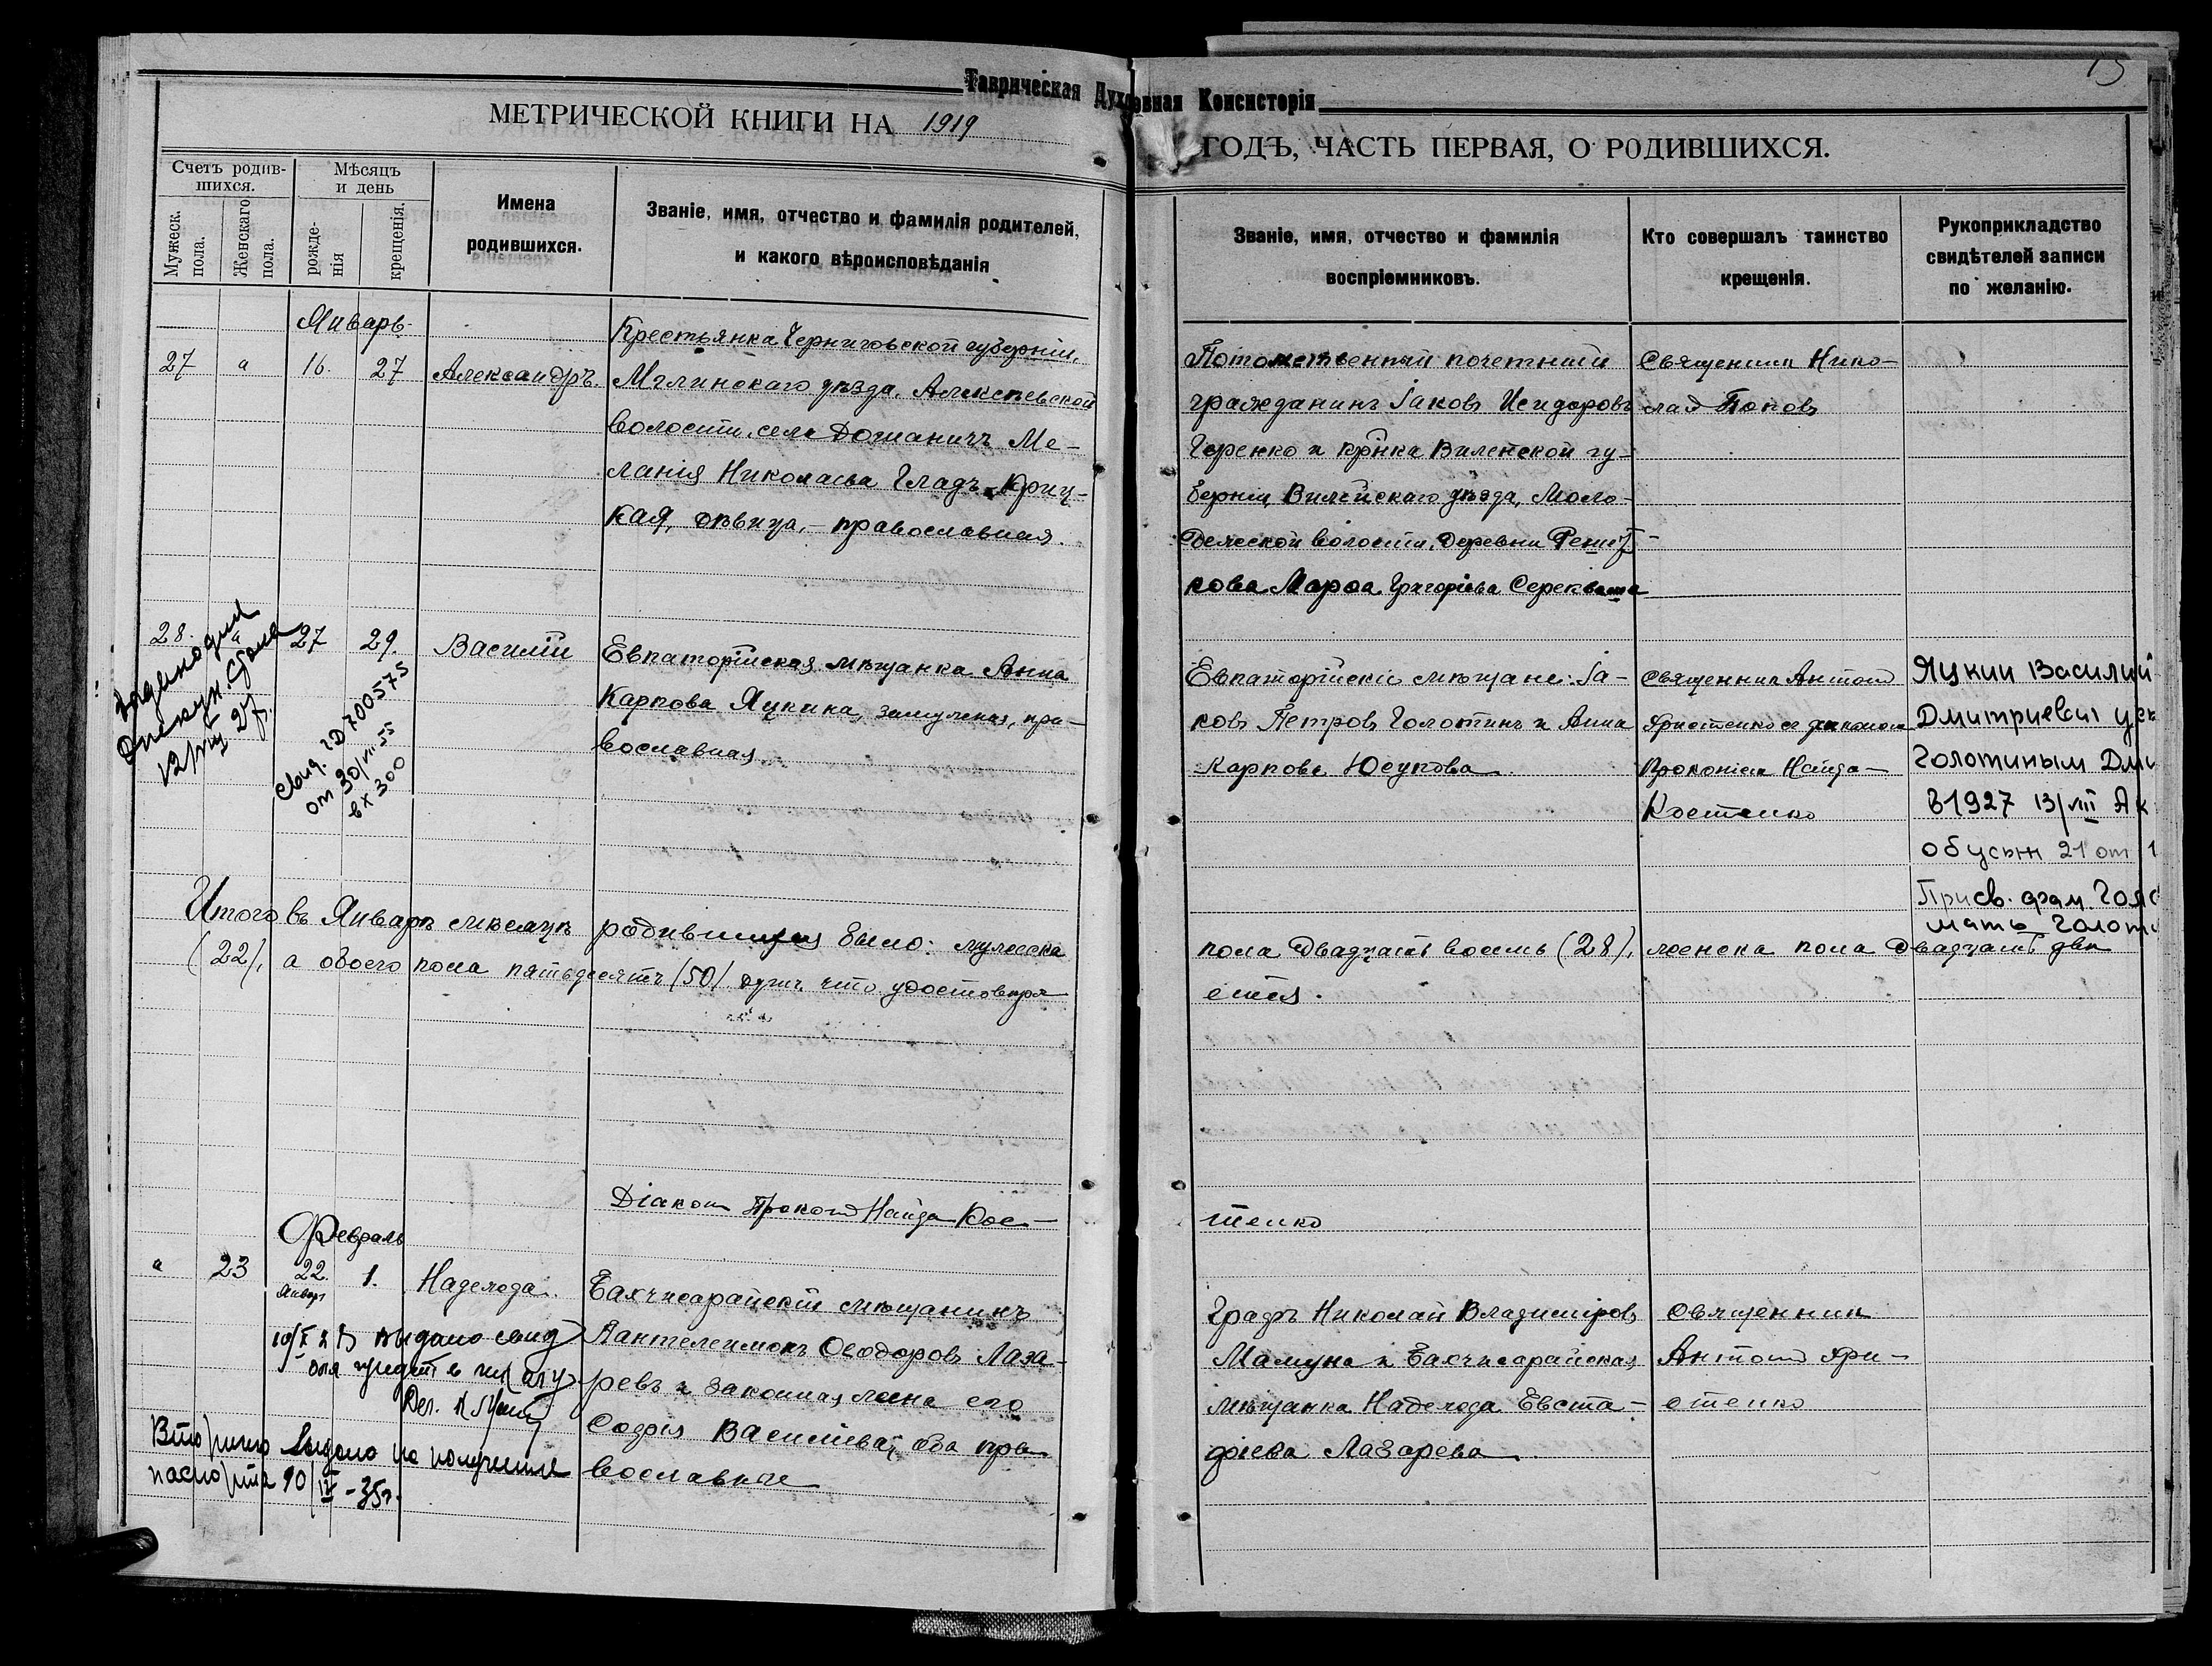 Таврическая Духовная Консисторія
15
МЕТРИЧЕСКОЙ КНИГИ НА 1919
ГОДЪ, ЧАСТЬ ПЕРВАЯ, О РОДИВШИХСЯ.
Счетъ родив-
шихся.
Мужеск.
пола.
Женскаго
пола.
Мѣсяцъ
и день
рожде-
нія
крещенія.
Имена
родившихся.
Званіе, имя, отчество и фамилія родителей,
и какого вѣроисповѣданія
Званіе, имя, отчество и фамилія
воспріемниковъ.
Кто совершалъ таинство
крещенія.
Рукоприкладство
свидѣтелей записи
по желанію.
Январь
27 " 16. 27 Александръ.
Крестьянка Черниговской губерніи,
Мглинскаго уѣзда, Алексѣевской
волости, села Доманичъ Ме-
ланія Николаева Гладъ-Криц-
кая, дѣвица, - православная.
Потомственный почетный
гражданинъ Іаковъ Исидоровъ
Геренко и кр-нка Виленской гу-
берніи, Вилейскаго уѣзда, Моло-
деческой волости, деревни
кова Марѳа Григоріева
Священникъ Нико-
лай Поповъ
28. " 27 29. Василій
Евпаторійская мѣщанка Анна
Карпова Яцкина, замужняя, пра-
вославная
Евпаторійскіе мѣщане: Іа-
ковъ Петровъ Голотинъ и Анна
Карпова Юсупова
Священникъ Антоній
Аристенко съ діакономъ
Прокопіем Найда-
Костенко
Яцкин Василий
Дмитриевич
Голотиным
в 1927 13/VIII
21 от
Присв. фам.
мать
Опекун. Стола
12/VIII 27г.
Свид. 2D700575
от 30/VII 55
вх 300
Итого въ Январѣ мѣсяцѣ родившихся было: мужеска
(22), а обоего пола пятьдесятъ (50) душъ что удостовѣря-
пола двадцать восемь (28), женска пола двадцать два
ется.
Діаконъ Прокопій Найда Кос-
тенко
Февраль
" 23 22. 1. Надежда.
Январ
Бахчисарайскій мѣщанинъ
Пантелеимонъ Ѳеодоровъ Лаза-
ревъ и законная жена его
Софія Васильева, оба пра-
вославные
Графъ Николай Владиміровъ
Мамуна и Бахчисарайская
мѣщанка Надежда Евста-
фіева Лазарева
Священникъ
Антоній Ари-
стенко
выдано свид
Вторично выдано на получение
паспорта 10/IV-35г.